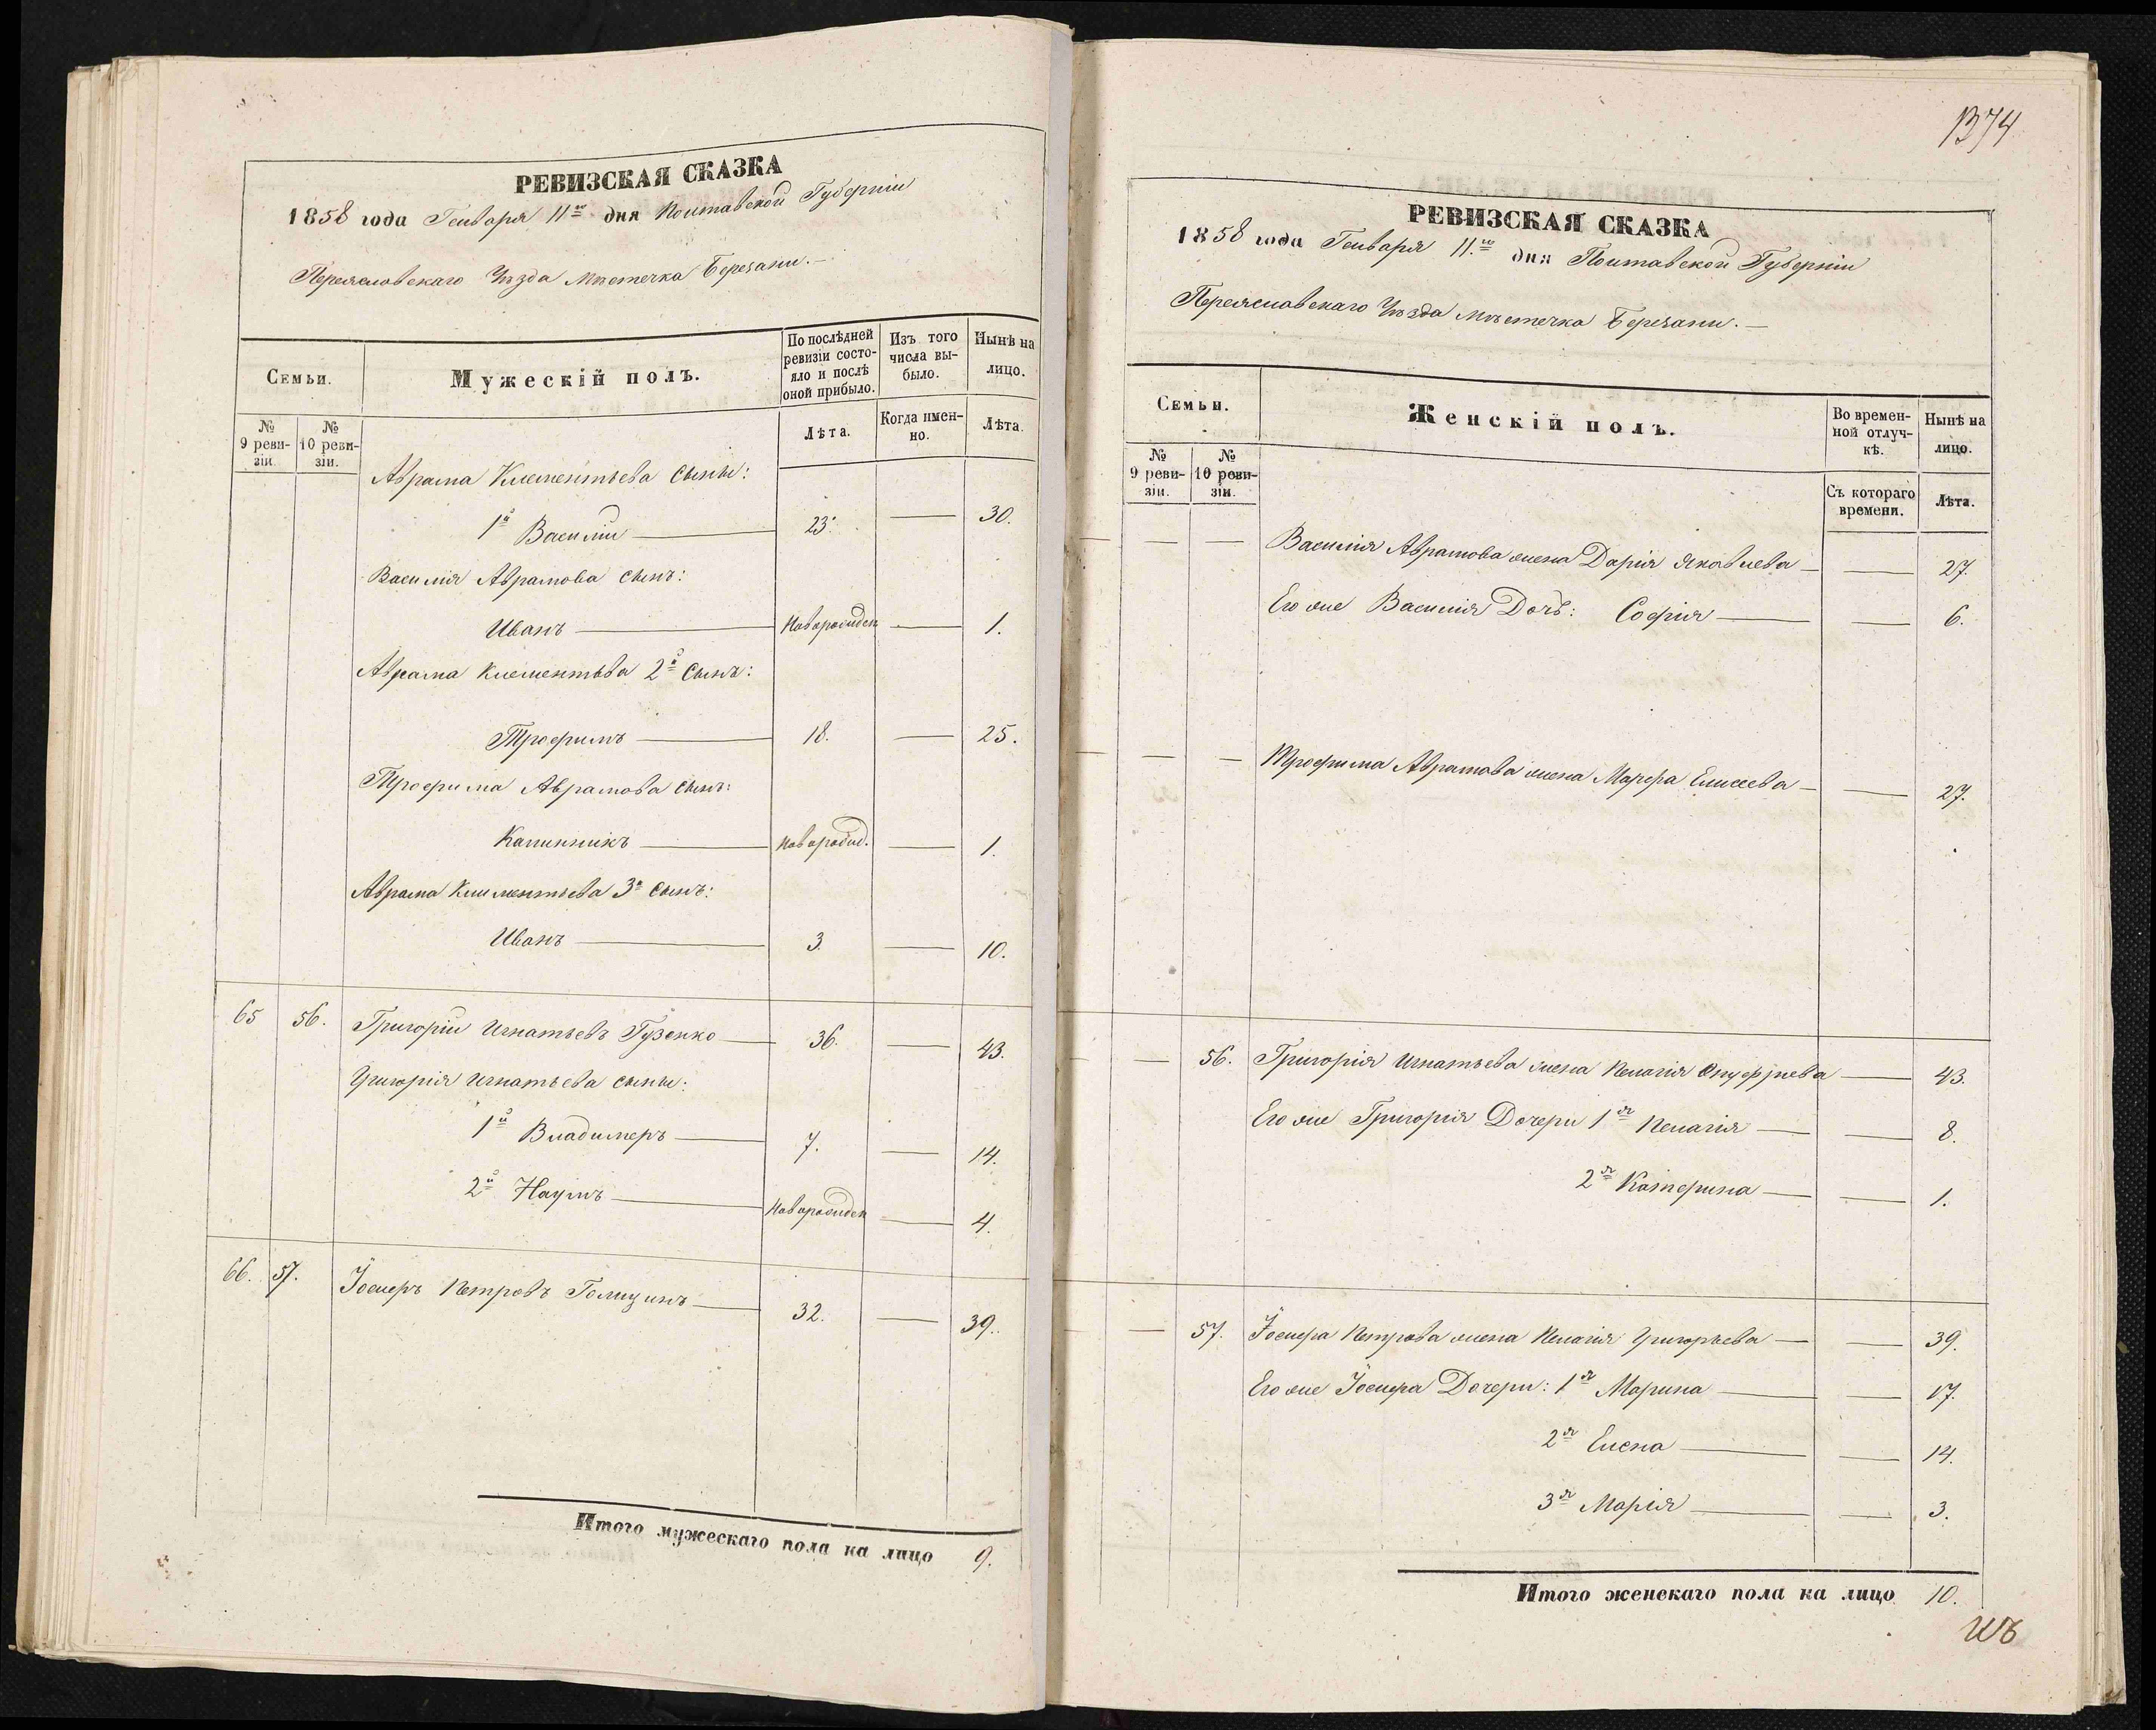 РЕВИЗСКАЯ СКАЗКА
1858 года Генваря 11го дня Полтавской Губернии
Переяславскаго Уѣзда мѣстечка Березани.
Семьи.
Мужескій полъ.
По послѣдней ревизіи состояло и послѣ оной прибыло.
Изъ того числа выбыло.
Нынѣ на лицо.
№ 9 ревизіи.
№ 10 ревизіи.
Лѣта.
Когда именно.
Лѣта.
Аврама Клементьева сыны:
1й Василій — 23. — 30.
Василія Аврамова сынъ:
Иванъ — Новорожден — 1.
Аврама Клементьева 2й сынъ:
Трофимъ — 18. — 25.
Трофима Аврамова сынъ:
Калинникъ — новорожд. — 1.
Аврама Климентьева 3й сынъ:
Иванъ — 3. — 10.
65 56. Григорій Игнатьевъ Гузенко — 36. — 43.
Григорія Игнатьева сыны:
1й Владимеръ — 7. — 14.
2й Наумъ — Новорожден — 4.
66. 57. Іосифъ Петровъ Голицинъ — 32. — 39.
Итого мужескаго пола на лицо 9.
1374
РЕВИЗСКАЯ СКАЗКА
1858 года Генваря 11.го дня Полтавской Губерніи
Переяславскаго Уѣзда мѣстечка Березани.
Семьи.
Женскій полъ.
Во временной отлучкѣ.
Нынѣ на лицо.
№ 9 ревизіи.
№ 10 ревизіи.
Съ котораго времени.
Лѣта.
— — Василія Аврамова жена Дарія Яковлева — — 27.
Его же Василія Дочь: Софія — — 6.
— — Трофима Аврамова жена Марфа Елисеева — — 27.
— 56. Григорія Игнатьева жена Пелагія Онуфріева — 43.
Его же Григорія Дочери 1я Пелагія — — 8.
2я Катерина — — 1.
— 57. Іосифа Петрова жена Пелагія Григорьева — — 39.
Его же Іосифа Дочери: 1я Марина — — 17.
2я Елена — — 14.
3я Марія — — 3.
Итого женскаго пола на лицо 10.